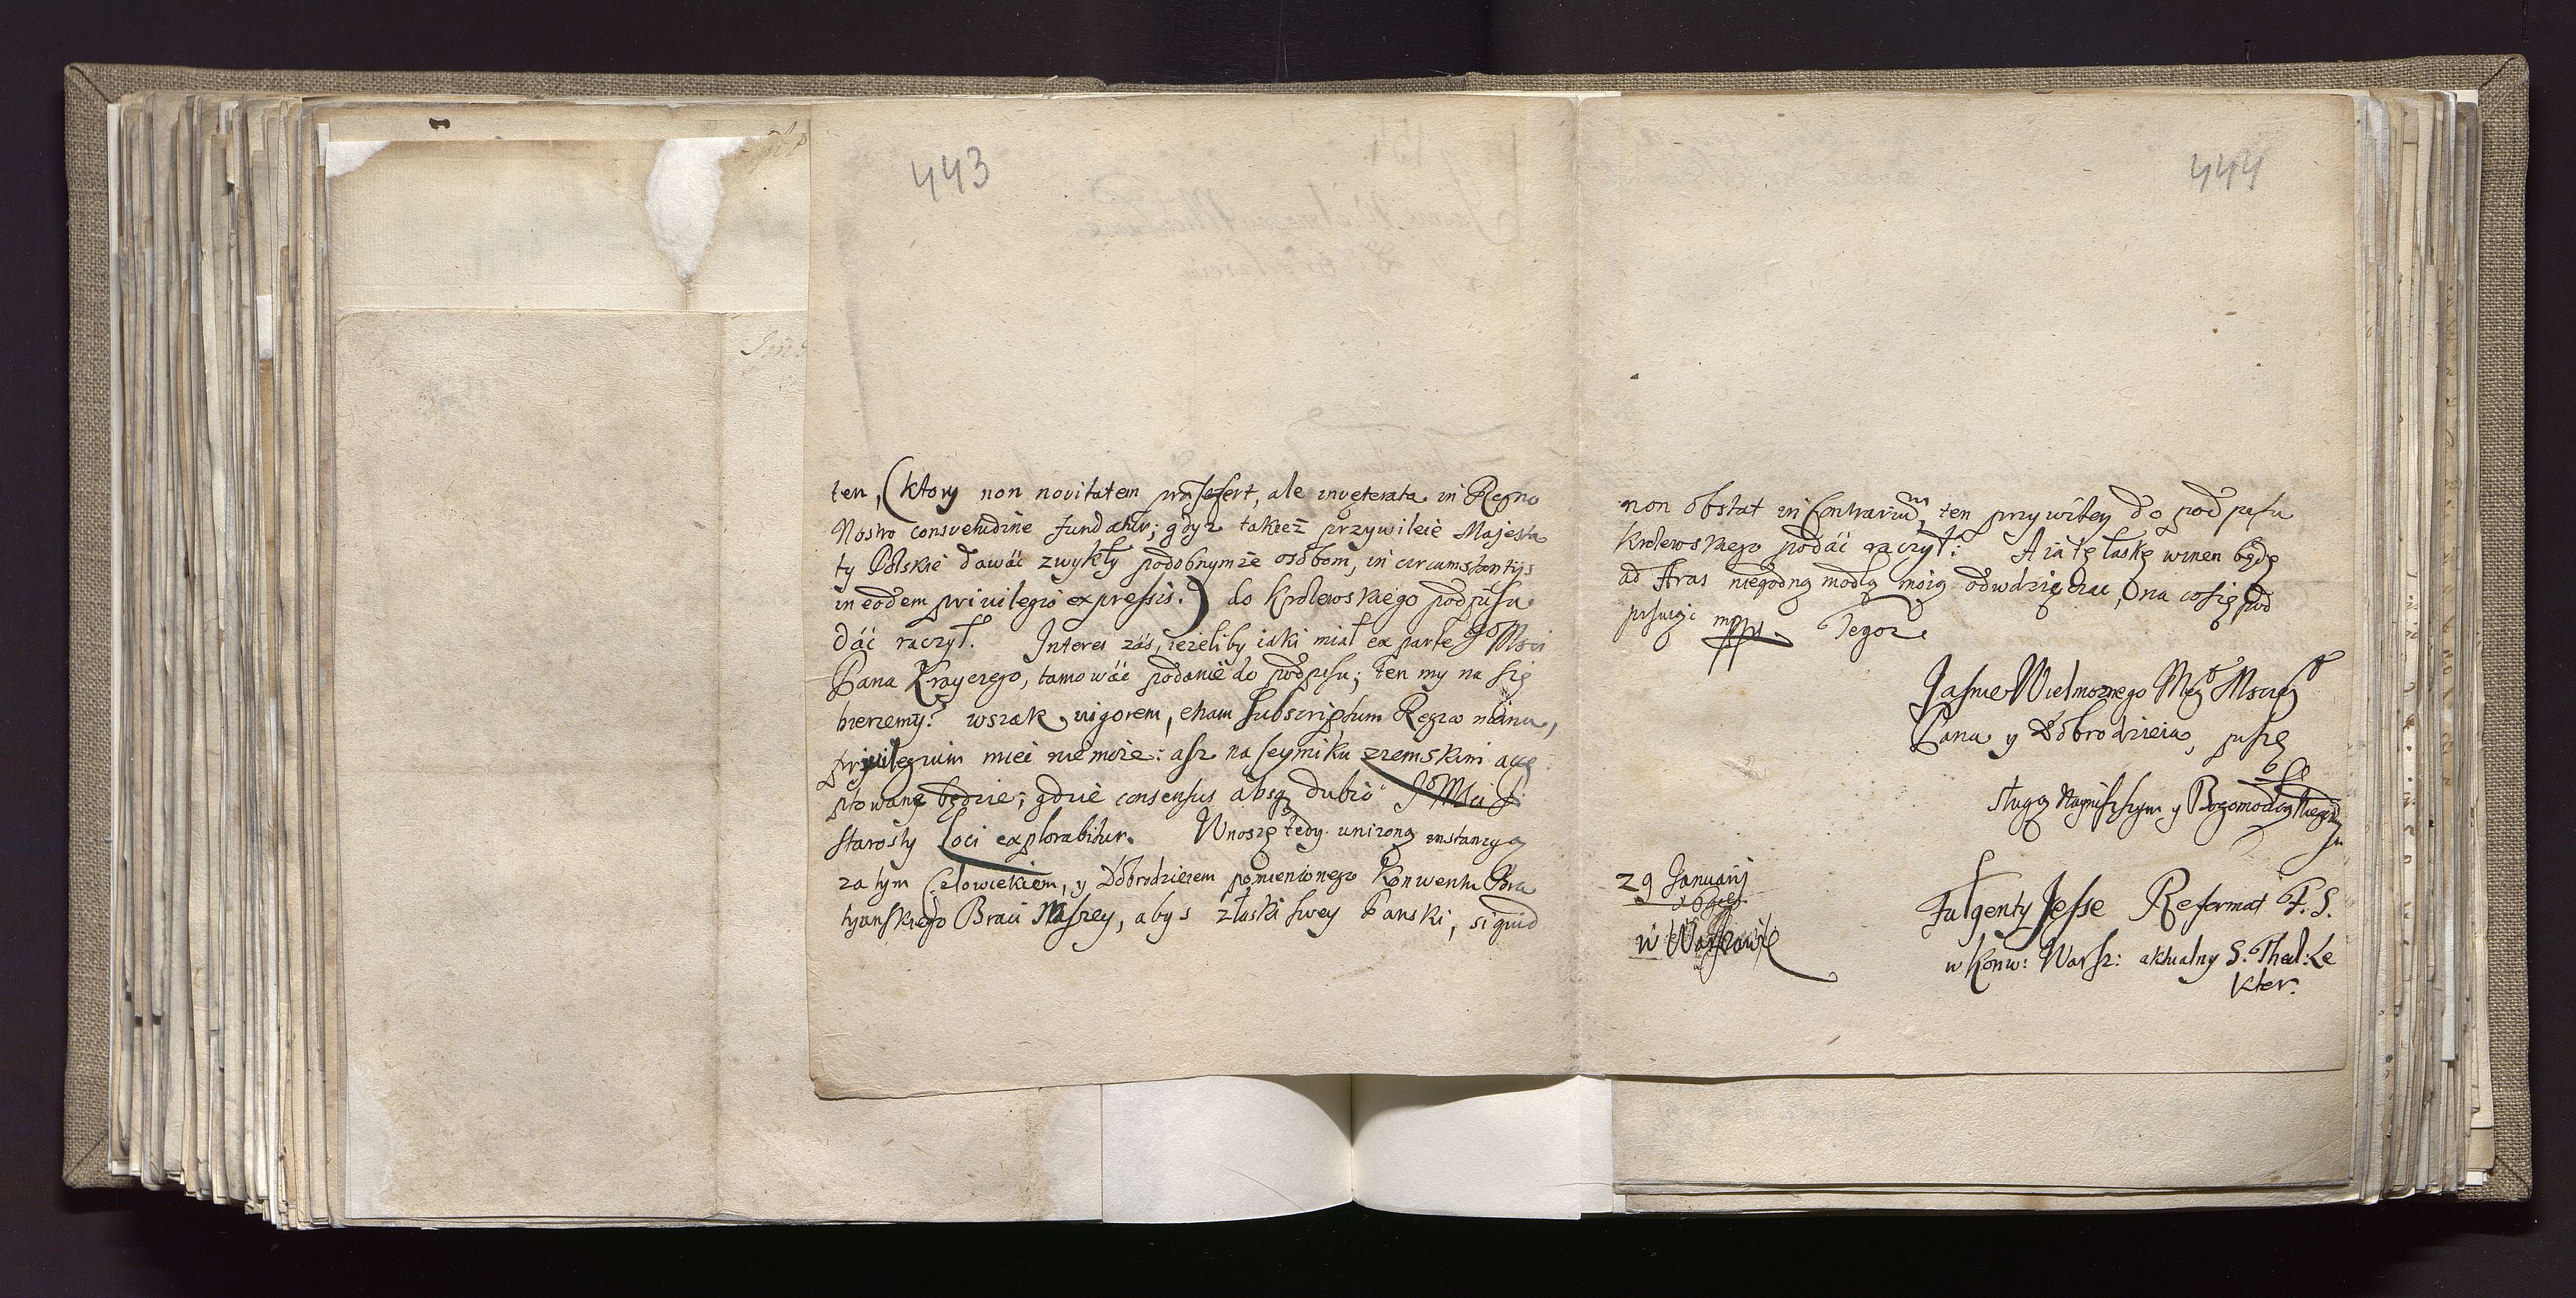 443
ten, (ktory non novitatem præsefert, ale inveterata in Regno
Nostro consvetudine fundatur; gdyz takież przywileie Majesta
ty Polskie dawáć zwykły podobnymże osobom, in circumstantijs
in eodem privilegio expressis.) do Krolewskiego podpisu
dáć raczył. Interes záś, ieżeliby iaki miał ex parte Jo Mści
Pana Krayczego, tamowáć podanie do podpisu; ten my na się
bierzemy? wszak vigorem, etiam subscriptum Regia manu,
privilegium miei nie może: asz na seymiku zremskim acce
ptowane będzie; gdzie consensus absq dubio Jo Mści P.
Starosty loci explorabitur. Wnoszę tedy unizoną instanzyą
za tym Człowiekiem, y Dobrodzieiem pomienionego Konwentu Bra
tyanskiego Braci Naszey, abys z łaski swey Panski, siquid
444
non obstat in Contrarium, ten przywiley do podpisu
Krolewskiego podáć raczył: A ia tę łaskę winen będę
ad Aras niegodną modlą moią odwdzięczac, na co się pod
pisuięc mppa. Tegoz
Jasnie Wielmoznego Mego Mściego
Pana y Dobrodzieia, piszę
sługą Nayniższym y Bogomodlcą
29 Januarij
w Warszawie
Fulgenty Jesse Reformat F. S.
w Konw: Warsz: aktualny S. Theol: Le
ktor.